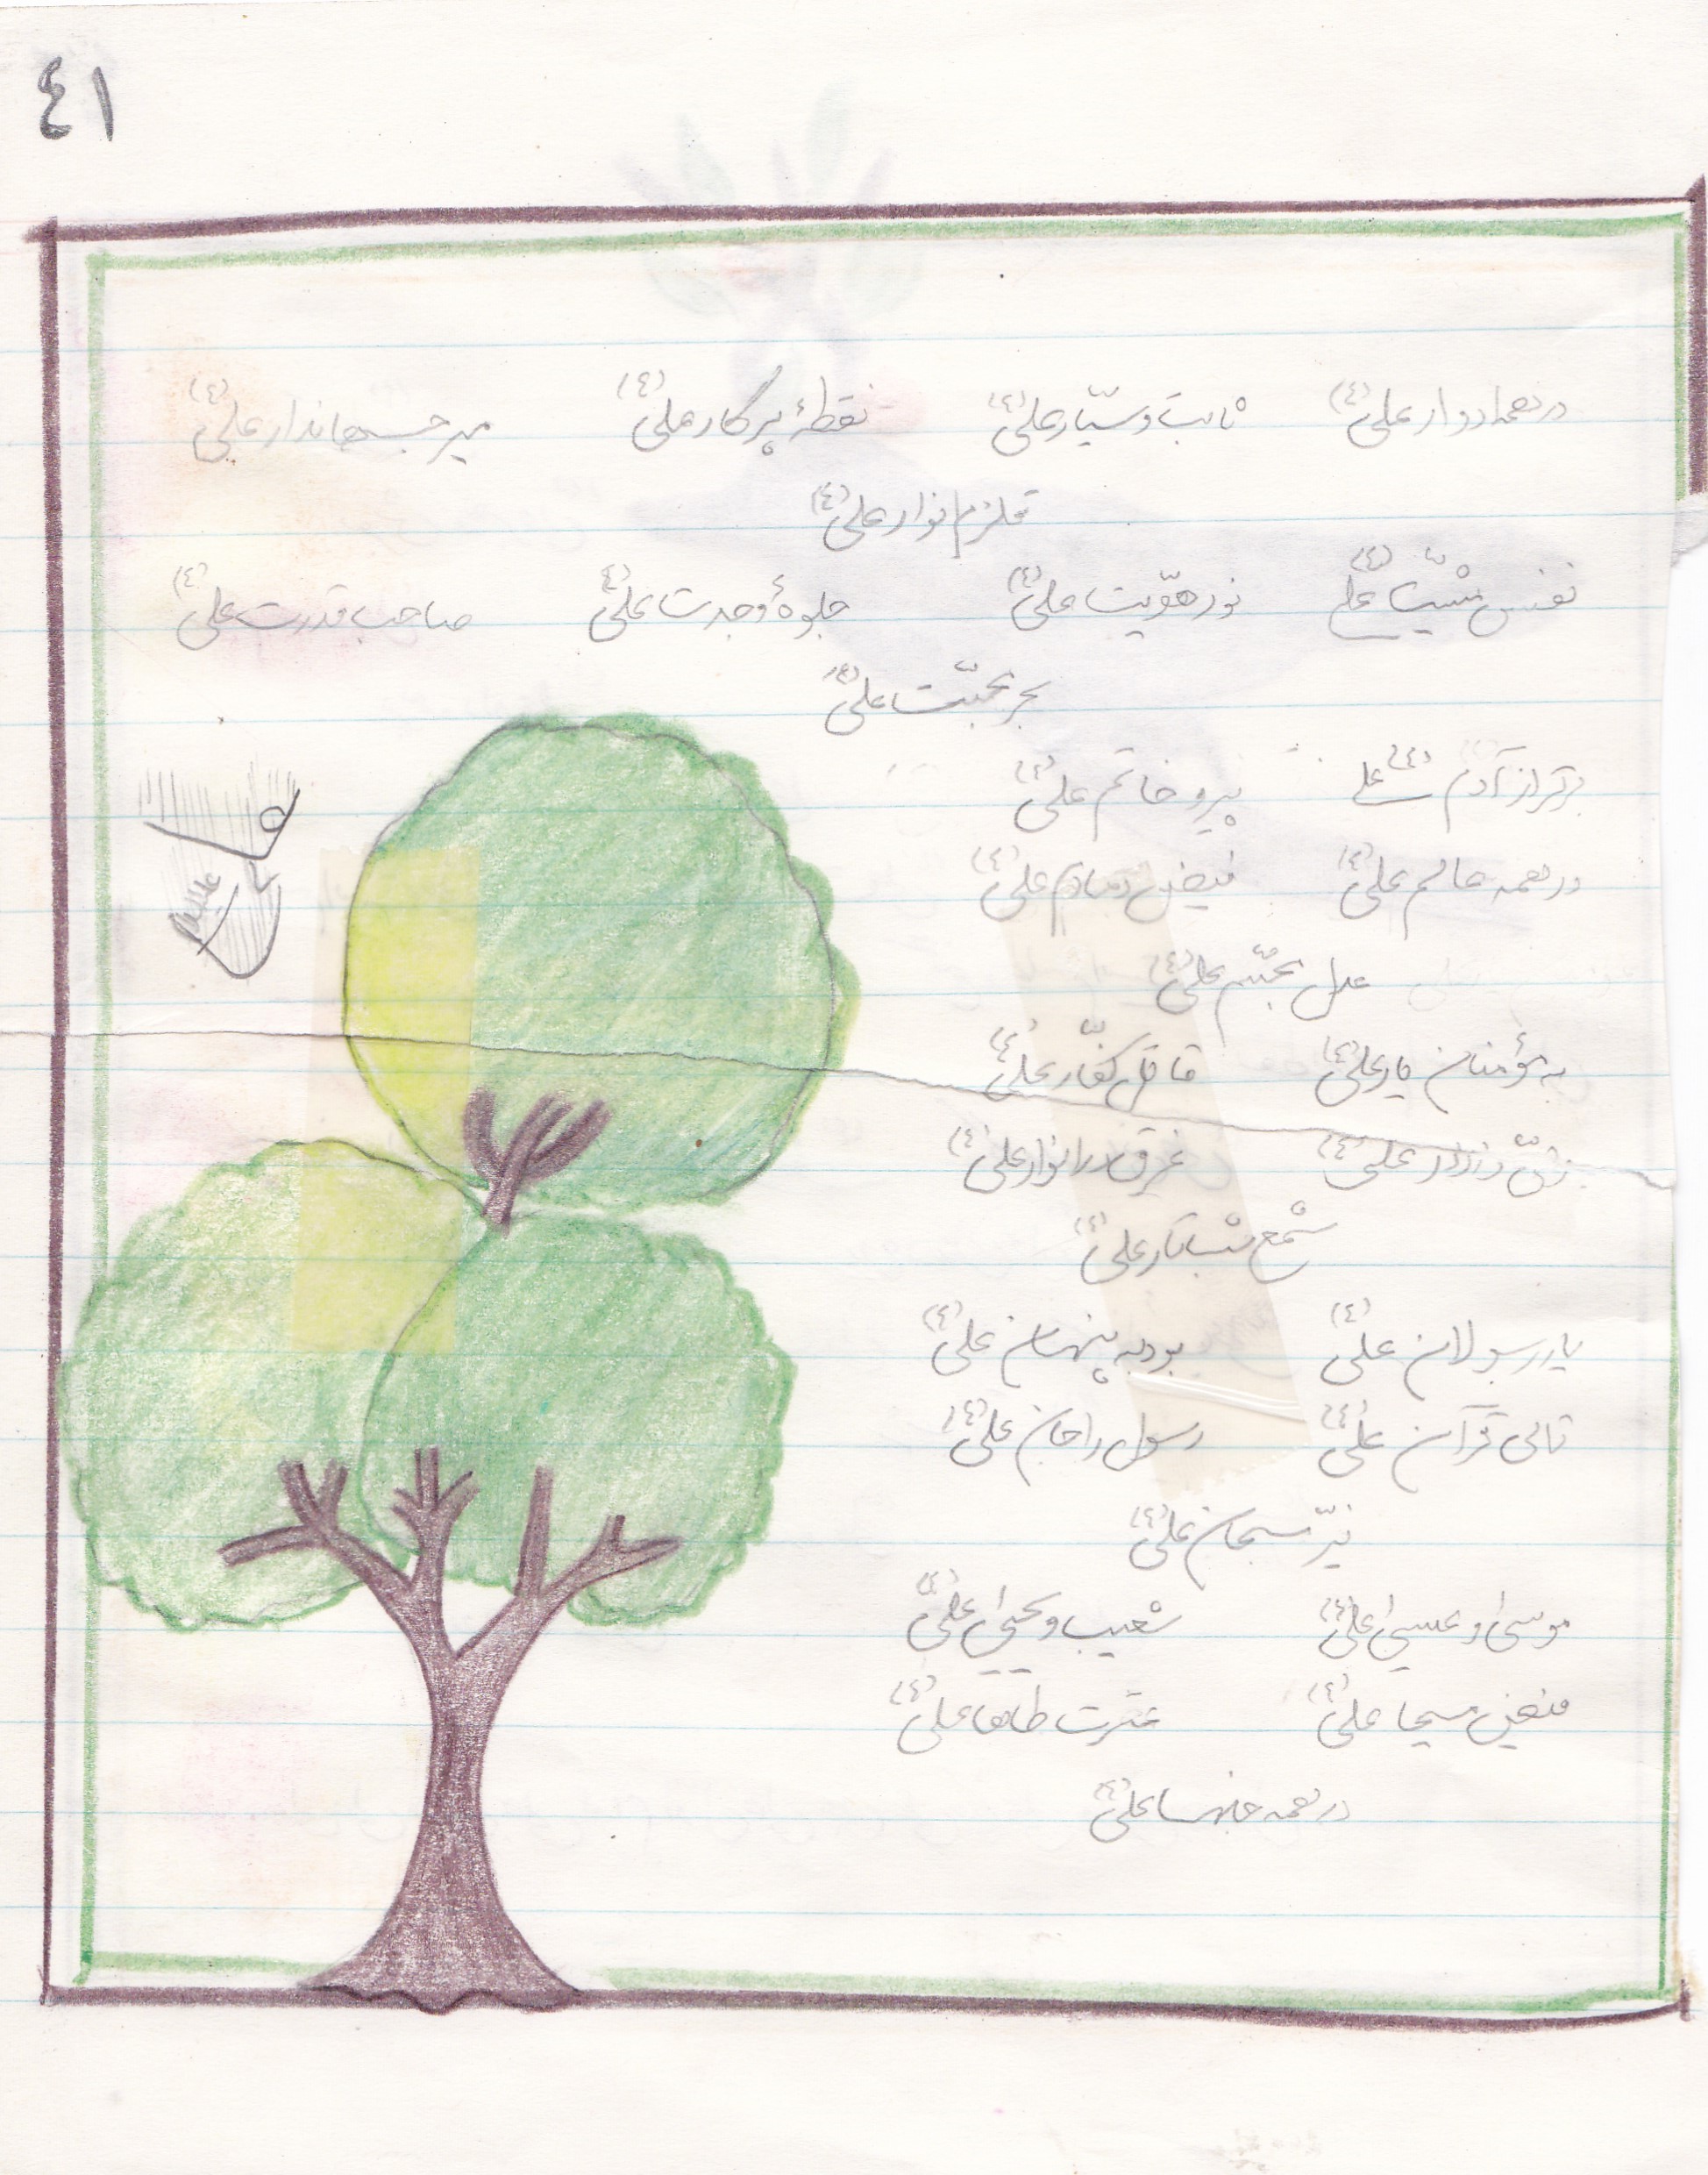 ٤١
در همه ادوار علی (ع) ثابت و سیّار علی (ع) نقطهٔ پرگار علی (ع) میر جهاندار علی (ع)
قلزم انوار علی (ع)
نفس مشیّت علی (ع) نور هویّت علی (ع) جلوهٔ وحدت علی (ع) صاحب قدرت علی (ع)
بحر محبّت علی (ع)
برتر از آدم علی (ع) پیرو خاتم علی (ع)
در همه عالم علی (ع) فیض دمادم علی (ع)
عدل مجسّم علی (ع)
به مؤمنان یار علی (ع) قاتل کفّار علی (ع)
علی (ع) غرق در انوار علی (ع)
شمع شب تار علی (ع)
یار رسولان علی (ع) بود به پنهان علی (ع)
تالی قرآن علی (ع) رسول را جان علی (ع)
نیّر سبحان علی (ع)
موسی و عیسی علی (ع) شعیب و یحیی علی (ع)
مسیحا علی (ع) عترت طاها علی (ع)
در همه علی (ع)